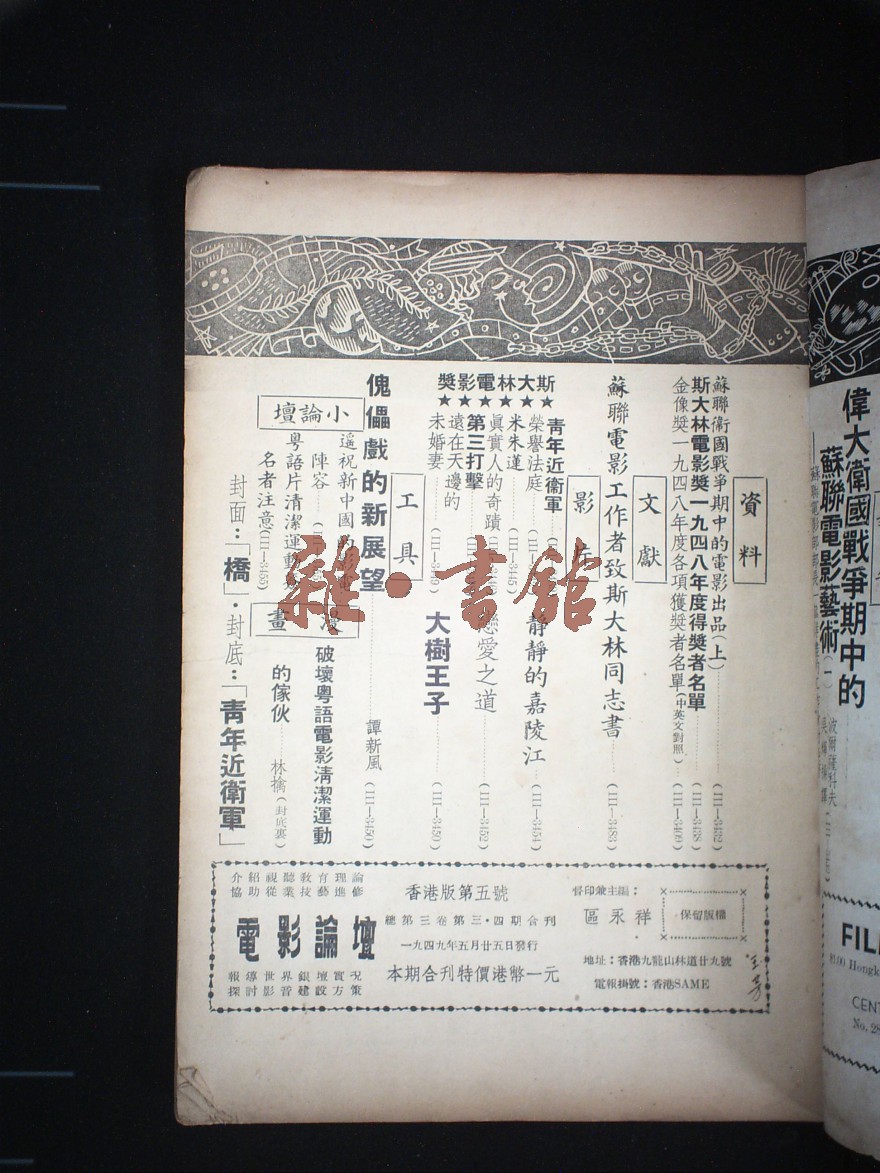 資料
蘇聯衞國戰爭期中的電影出品(上)
斯大林電影獎一九四八年度得獎者名單
金像獎一九四八年度各項獲獎者名單(中英文對照)
文獻
蘇聯電影工作者致斯大林同志書
影
斯大林電影獎
★★★★★★
青年近衞軍
榮譽法庭
米朱蓮
眞實人的奇蹟
第三打擊
遠在天邊的
未婚妻
靜靜的嘉陵江
戀愛之道
大樹王子
工具
傀儡戲的新展望 譚新風
小論壇
遥祝新中國的
陣容
粵語片清潔運動
名者注意
漫畫
破壞粵語電影清潔運動
的傢伙 林擒(封底裏)
封面:「橋」·封底:「靑年近衛軍」
論理育教聽視紹介
修進藝技業從助協
電影論壇
報導世界銀壇實況
探討影音建設方策
香港版第五號
總第三卷第三·四期合刊
一九四九年五月廿五日發行
本期合刊特價港幣一元
督印兼主編:
區永祥
保留版權
地址:香港九龍山林道廿九號
電報掛號:香港SAME
雜·書館
偉大衛國戰爭期中的
蘇聯電影藝術(一)
FIL
Hongk
CENT
No. 28